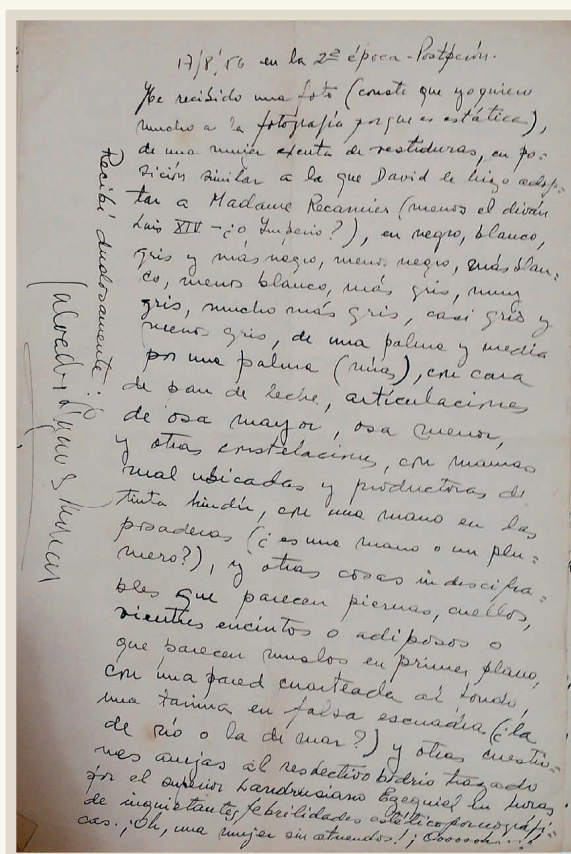 17/8/56 en la 2ª época - Postperón.
He recibido una foto (conste que yo quiero
mucho a la fotografía porque es estática),
de una mujer exenta de vestiduras, en po=
sición similar a la que David le hizo adop=
tar a Madame Recamier (menos el diván
Luis XIV - ¿o Imperio?), en negro, blanco,
gris y más negro, menos negro, más blan=
co, menos blanco, más gris, muy
gris, mucho más gris, casi gris y
menos gris, de una palma y media
por una palma (mías), con cara
de pan de leche, articulaciones
de osa mayor, osa menor,
y otras constelaciones, con mamas
mal ubicadas y productoras de
tinta, con una mano en las
posaderas (¿es una mano o un plu=
mero?), y otras cosas indescifra=
bles que parecen piernas, cuellos,
vientres encintos o adiposos o
que parecen muslos en primer plano,
con una pared cuarteada al fondo,
una tarima en falsa escuadra (¿la
de río o la de mar?) y otras cuestio=
nes anejas al respectivo bodrio trazado
por el superior Landrusiano Ezequiel en horas
de inquietantes febrilidades estéticopornográfi=
cas. ¡Oh, una mujer sin atuendos!
Recibí dudosamente: